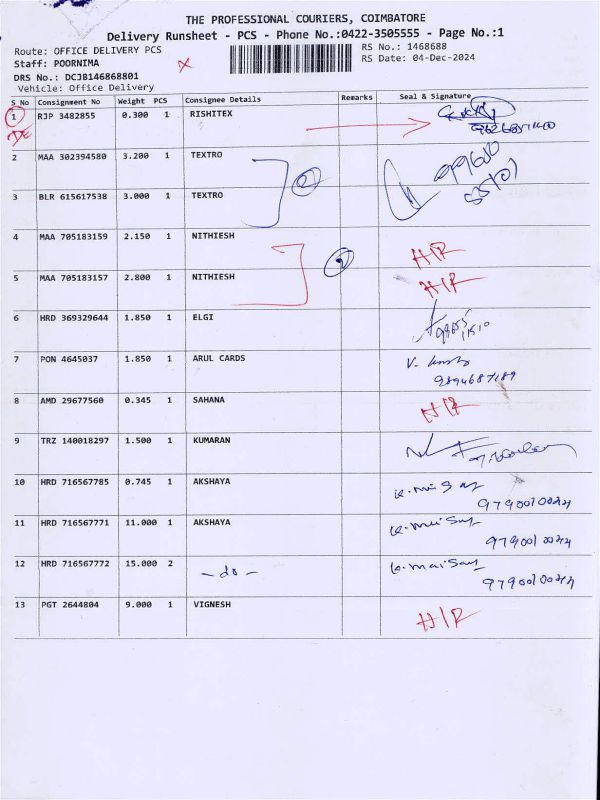 THE PROFESSIONAL COURIERS, COIMBATORE
Delivery Runsheet - PCS - Phone No.:0422-3505555 - Page No.:1
Route: OFFICE DELIVERY PCS
RS No.: 1468688
Staff: POORNIMA
RS Date: 04-Dec-2024
DRS No.: DCJB146868801
Vehicle: Office Delivery
S No Consignment No Weight PCS Consignee Details Remarks Seal & Signature
1 RJP 3482855 0.300 1 RISHITEX
2 MAA 302394580 3.200 1 TEXTRO
3 BLR 615617538 3.000 1 TEXTRO
4 MAA 705183159 2.150 1 NITHIESH H/R
5 MAA 705183157 2.800 1 NITHIESH H/R
6 HRD 369329644 1.850 1 ELGI
7 PON 4645037 1.850 1 ARUL CARDS
9894687189
8 AMD 29677560 0.345 1 SAHANA H/R
9 TRZ 140018297 1.500 1 KUMARAN
10 HRD 716567785 0.745 1 AKSHAYA
9790010024
11 HRD 716567771 11.000 1 AKSHAYA
9790010024
12 HRD 716567772 15.000 2 - do -
9790010024
13 PGT 2644804 9.000 1 VIGNESH H/R